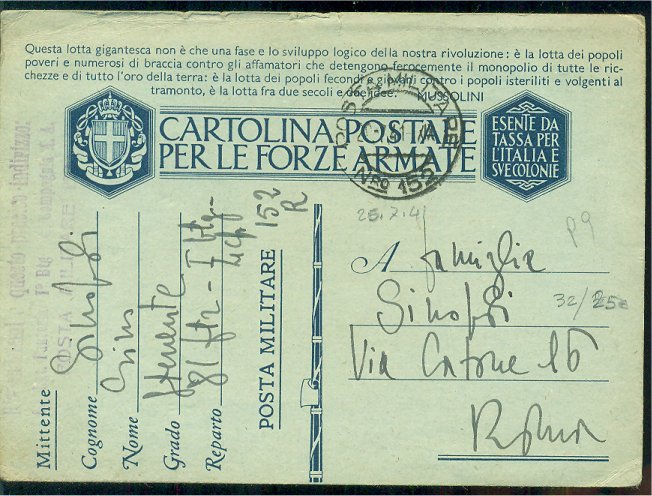 Questa lotta gigantesca non è che una fase e lo sviluppo logico della nostra rivoluzione: è la lotta dei popoli
poveri e numerosi di braccia contro gli affamatori che detengono ferocemente il monopolio di tutte le ric-
chezze e di tutto l'oro della terra: è la lotta dei popoli fecondi e giovani contro i popoli isteriliti e volgenti al
tramonto, è la lotta fra due secoli e due idee. MUSSOLINI
CARTOLINA POSTALE
PER LE FORZE ARMATE
ESENTE DA
TASSA PER
L'ITALIA E
SVE COLONIE
POSTA MILITARE
Nro 152
25.7.41
P9
A famiglia
32/
Via Catone 16
Roma
Mittente
Cognome
Nome
Grado
Reparto
POSTA MILITARE 152
R